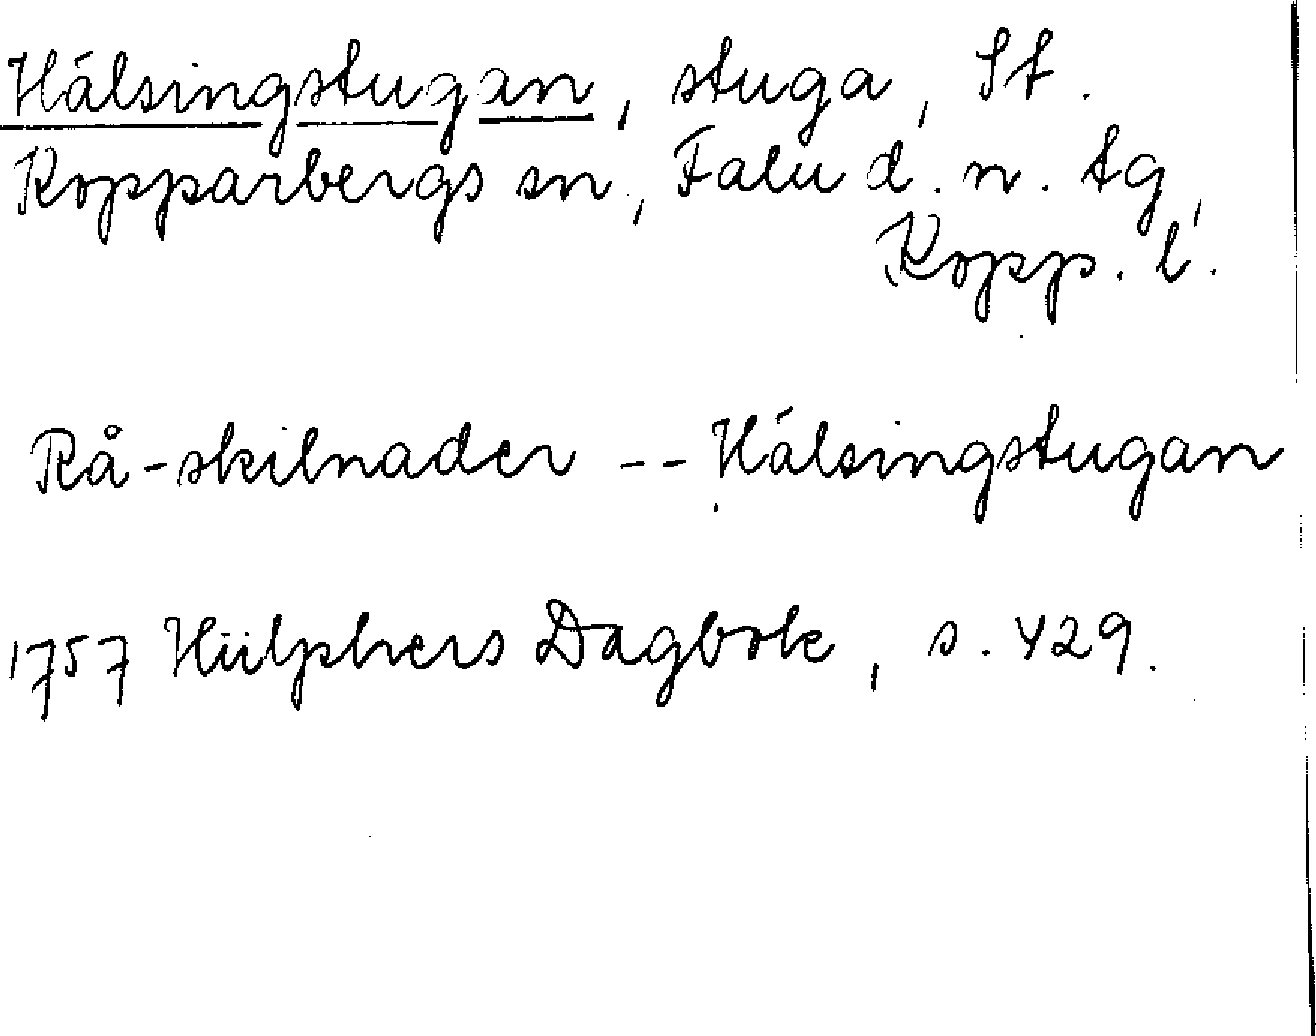 Hälsingstugan, stuga, St.
Kopparbergs sn., Falu d. n. tg,
Kopp. l.
Rå-skilnader -- Hälsingstugan
1757 Hülphers Dagbok, s. 429.